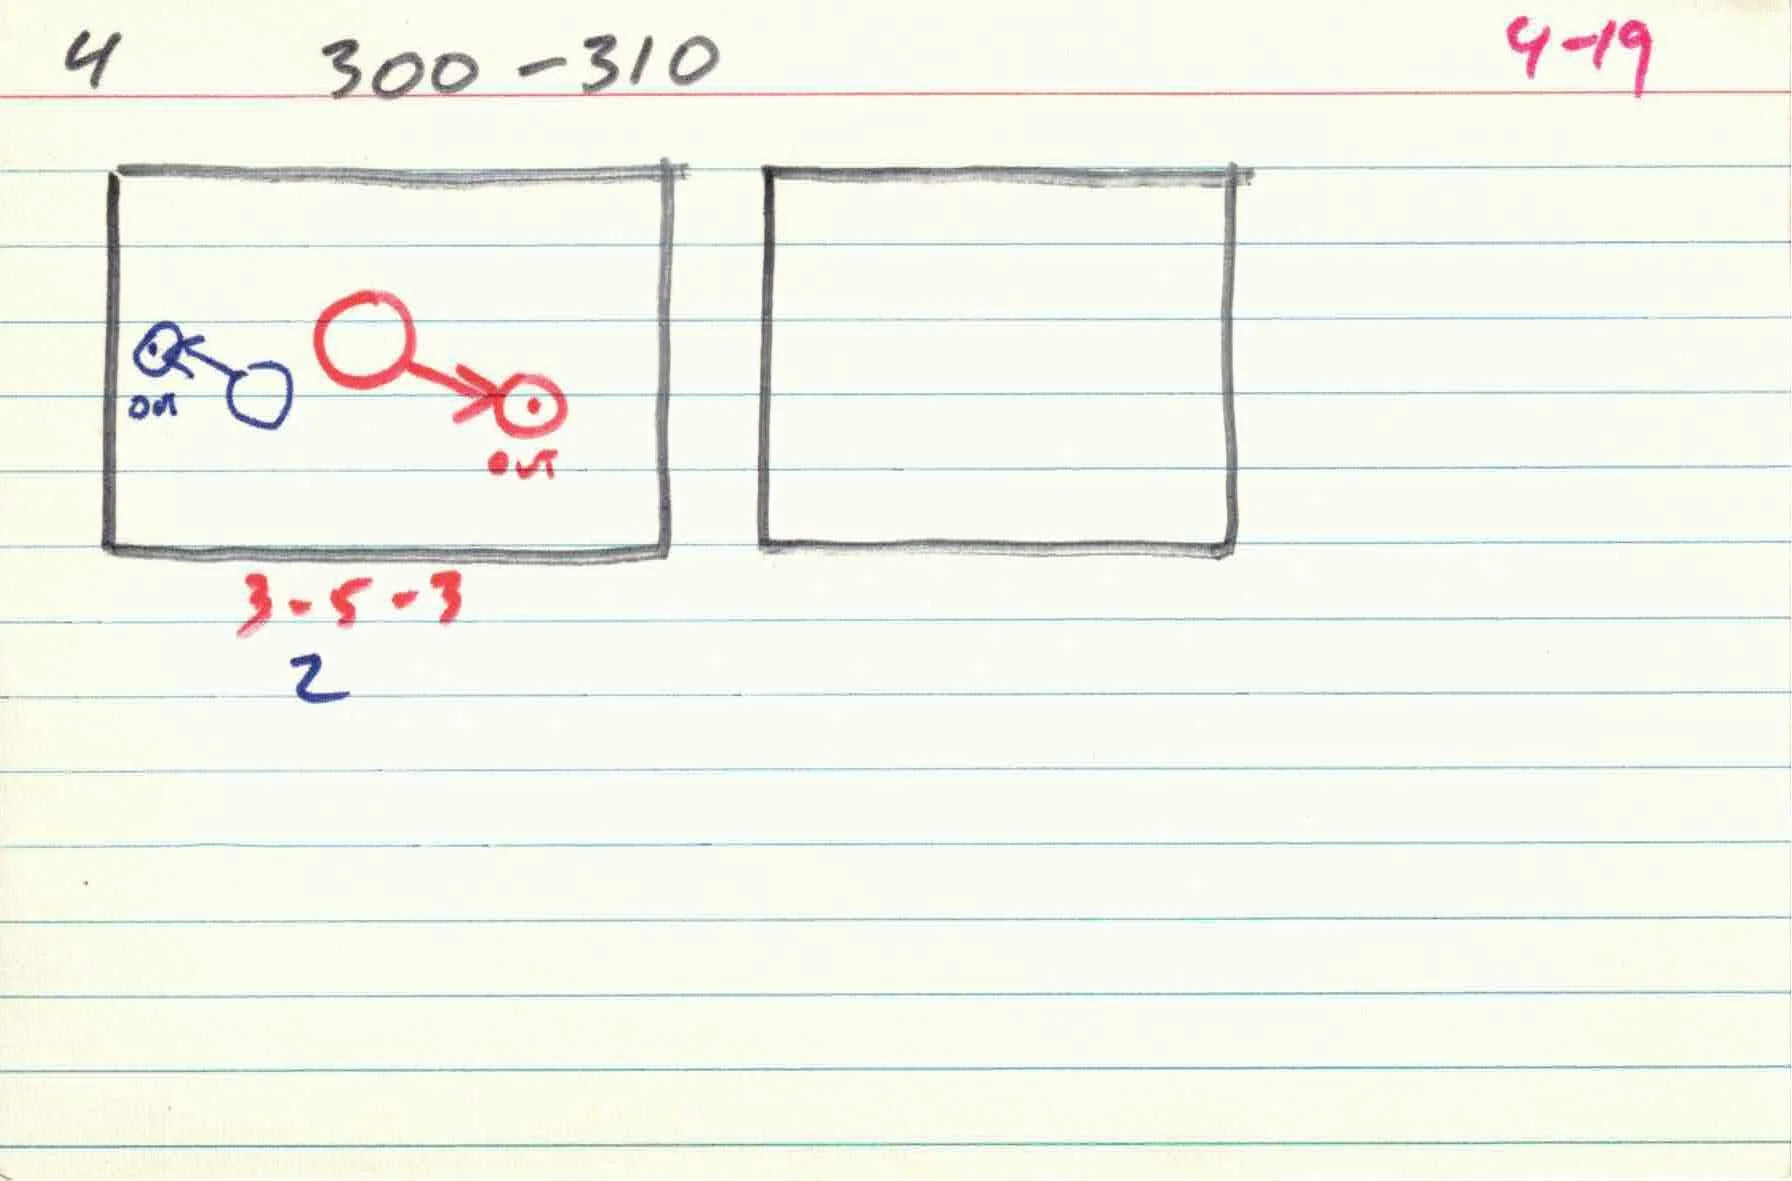 4 300-310 4-19
OUT
OUT
3-5-3
2